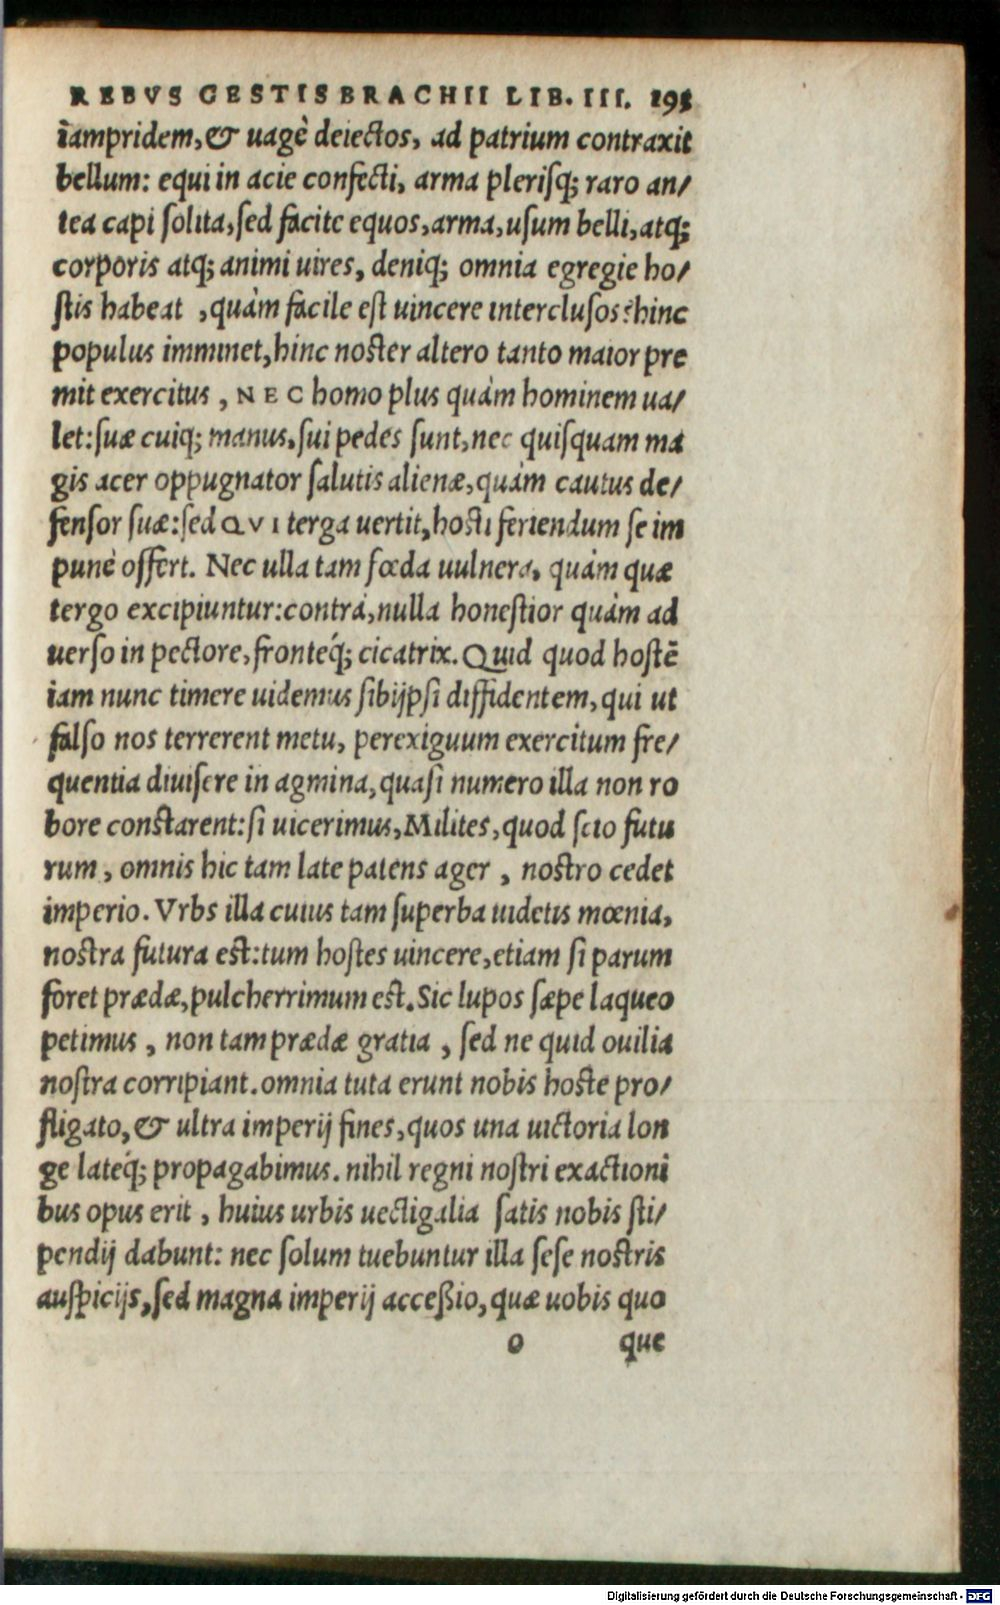 REBVS GESTIS BRACHII LIB. III. 193
iampridem, & uagè deiectos, ad patrium contraxit
bellum: equi in acie confecti, arma plerisq; raro an/
tea capi solita, sed facite equos, arma, usum belli, atq;
corporis atq; animi uires, deniq; omnia egregie ho/
stis habeat , quàm facile est uincere interclusos? hinc
populus imminet, hinc noster altero tanto maior pre
mit exercitus , NEC homo plus quàm hominem ua/
let: suæ cuiq; manus, sui pedes sunt, nec quisquam ma
gis acer oppugnator salutis alienæ, quàm cautus de/
fensor suæ: sed QVI terga uertit, hosti feriendum se im
punè offert. Nec ulla tam fœda uulnera, quàm quæ
tergo excipiuntur: contrá, nulla honestior quàm ad
uerso in pectore, fronteq́; cicatrix. Quid quod hostẽ
iam nunc timere uidemus sibijpsi diffidentem, qui ut
falso nos terrerent metu, perexiguum exercitum fre/
quentia diuisere in agmina, quasi numero illa non ro
bore constarent: si uicerimus, Milites, quod scio futu
rum , omnis hic tam late patens ager , nostro cedet
imperio. Vrbs illa cuius tam superba uidetis mœnia,
nostra futura est: tum hostes uincere, etiam si parum
foret prædæ, pulcherrimum est. Sic lupos sæpe laqueo
petimus , non tam prædæ gratia , sed ne quid ouilia
nostra corripiant. omnia tuta erunt nobis hoste pro/
fligato, & ultra imperij fines, quos una uictoria lon
ge lateq́; propagabimus. nihil regni nostri exactioni
bus opus erit , huius urbis uectigalia satis nobis sti/
pendij dabunt: nec solum tuebuntur illa sese nostris
auspicijs, sed magna imperij acceßio, quæ uobis quo
o que
Digitalisierung gefördert durch die Deutsche Forschungsgemeinschaft - DFG